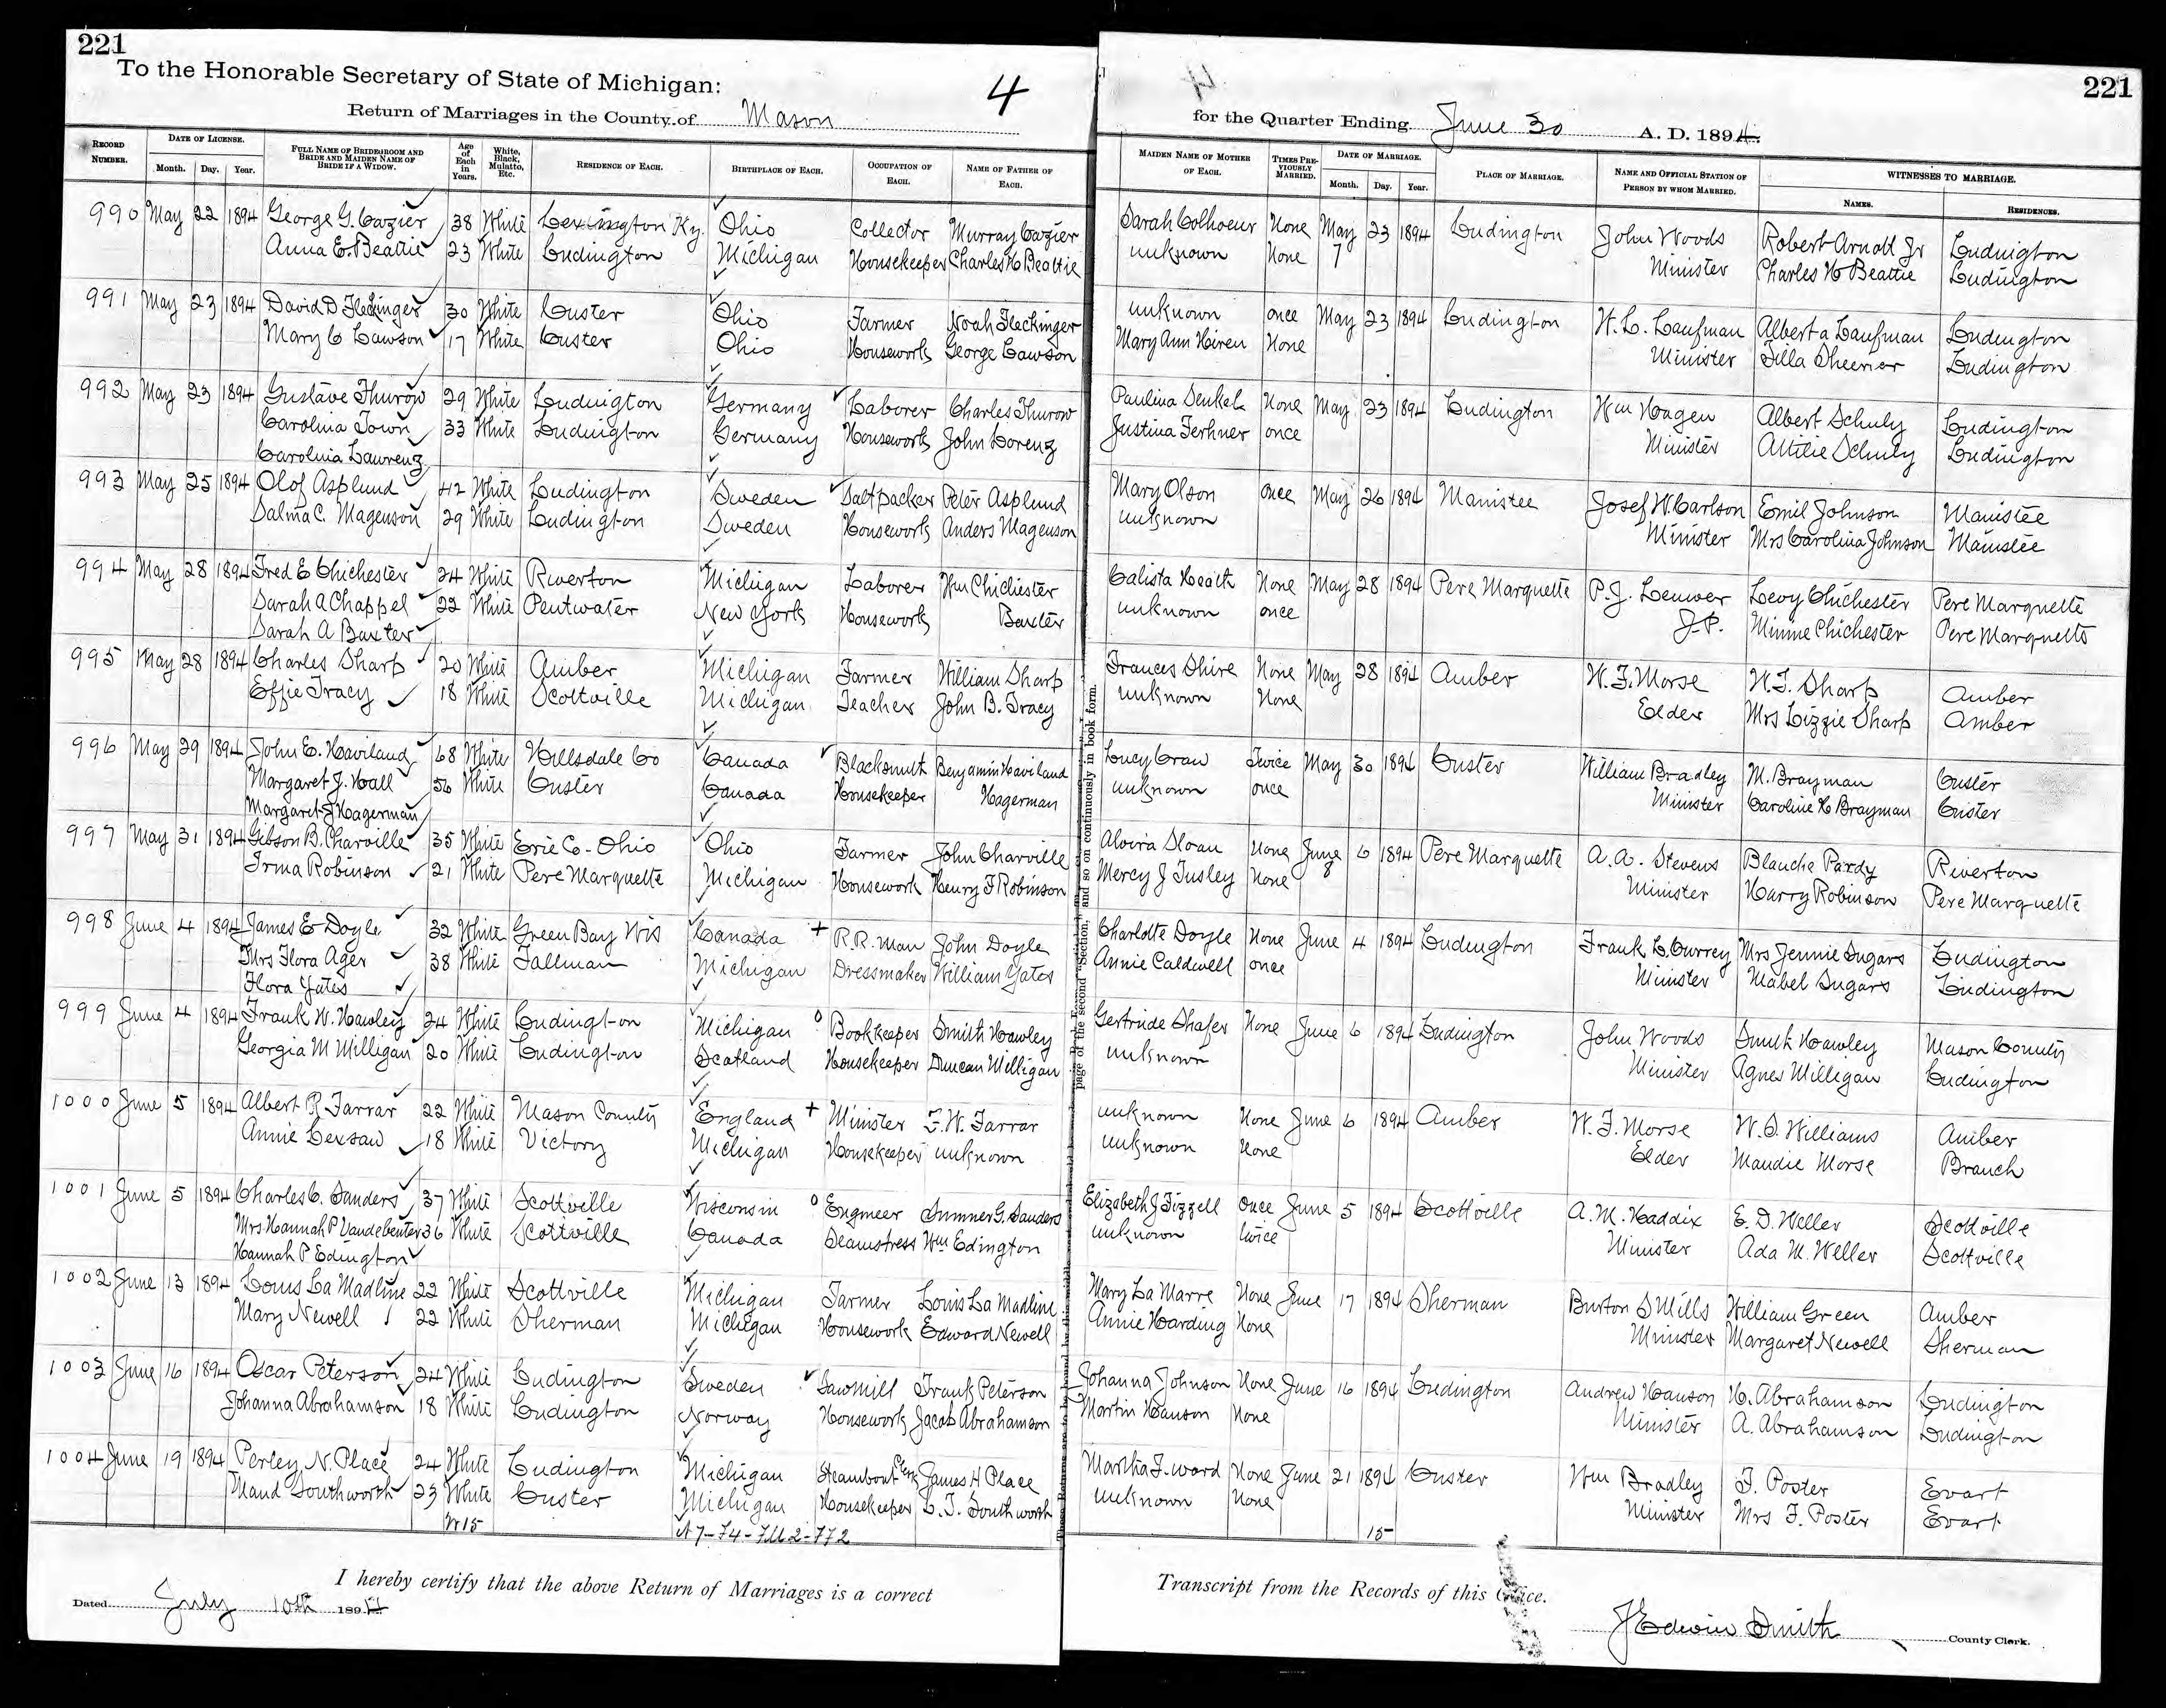 221
To the Honorable Secretary of State of Michigan:
4
Return of Marriages in the County of Mason
for the Quarter Ending June 30 A. D. 1894.
221
RECORD NUMBER. DATE OF LICENSE. Month. Day. Year. FULL NAME OF BRIDEGROOM AND BRIDE AND MAIDEN NAME OF BRIDE IF A WIDOW. Age of Each in Years. White, Black, Mulatto, Etc. RESIDENCE OF EACH. BIRTHPLACE OF EACH. OCCUPATION OF EACH. NAME OF FATHER OF EACH. MAIDEN NAME OF MOTHER OF EACH. TIMES PREVIOUSLY MARRIED. DATE OF MARRIAGE. Month. Day. Year. PLACE OF MARRIAGE. NAME AND OFFICIAL STATION OF PERSON BY WHOM MARRIED. WITNESSES TO MARRIAGE. NAMES. RESIDENCES.
990 May 22 1894 George G. Cazier 38 White Lexington Ky. Ohio Collector Murray Cazier Sarah Colhoeur None May 23 1894 Ludington John Woods Robert Arnott Jr Ludington
Anna E. Beattie 23 White Ludington Michigan Housekeeper Charles H Beattie unknown None 7 Minister Charles H Beattie Ludington
991 May 23 1894 David D Fleckinger 30 White Custer Ohio Farmer Noah Fleckinger unknown once May 23 1894 Ludington H. L. Laufman Albert a Laufman Ludington
Mary C Lawson 17 White Custer Ohio Housework George Lawson Mary Ann Hiren None Minister Tilla Sheerer Ludington
992 May 23 1894 Gustave Thurow 29 White Ludington Germany Laborer Charles Thurow Paulina Denkel None May 23 1894 Ludington Wm Hagen Albert Schuly Ludington
Carolina Town 33 White Ludington Germany Housework John Lorenz Justina Ferhner once Minister Attilie Schuly Ludington
Carolina Lawrenz
993 May 25 1894 Olof Asplund 42 White Ludington Sweden Saltpacker Peter Asplund Mary Olson once May 26 1894 Manistee Josef W. Carlson Emil Johnson Manistee
Salma C. Magenson 29 White Ludington Sweden Housework Anders Magenson unknown Minister Mrs Carolina Johnson Manistee
994 May 28 1894 Fred E Chichester 24 White Riverton Michigan Laborer Wm Chichester Calista Heath None May 28 1894 Pere Marquette P. J. Leuwer Levy Chichester Pere Marquette
Sarah A Chappel 22 White Pentwater New York Housework Baxter unknown once J.P. Minnie Chichester Pere Marquette
Sarah A Baxter
995 May 28 1894 Charles Sharp 20 White Amber Michigan Farmer William Sharp Frances Shire None May 28 1894 Amber W. F. Morse W. T. Sharp Amber
Effie Tracy 18 White Scottville Michigan Teacher John B. Tracy unknown None Elder Mrs Lizzie Sharp Amber
996 May 29 1894 John E. Haviland 68 White Hillsdale Co Canada Blacksmith Benjamin Haviland Lucy Craw Twice May 30 1894 Custer William Bradley M. Brayman Custer
Margaret J. Hall 56 White Custer Canada Housekeeper Hagerman unknown once Minister Caroline H Brayman Custer
Margaret J Hagerman
997 May 31 1894 Gibson B. Charville 35 White Erie Co - Ohio Ohio Farmer John Charville Alvira Sloan None June 6 1894 Pere Marquette A. A. Stevens Blanche Pardy Riverton
Irma Robinson 21 White Pere Marquette Michigan Housework Henry F Robinson Mercy J Tusley None 8 Minister Harry Robinson Pere Marquette
998 June 4 1894 James E Doyle 32 White Green Bay Wis Canada + R.R. man John Doyle Charlotte Doyle None June 4 1894 Ludington Frank L. Currey Mrs Jennie Sugars Ludington
Mrs Flora Ager 38 White Tallman Michigan Dressmaker William Yates Annie Caldwell once Minister Mabel Sugars Ludington
Flora Yates
999 June 4 1894 Frank W. Hawley 24 White Ludington Michigan o Bookkeeper Smith Hawley Gertrude Shafer None June 6 1894 Ludington John Woods Smith Hawley Mason County
Georgia M Milligan 20 White Ludington Scotland Housekeeper Duncan Milligan unknown Minister Agnes Milligan Ludington
1000 June 5 1894 Albert R Farrar 22 White Mason County England + Minister F. W. Farrar unknown None June 6 1894 Amber W. F. Morse W. S. Williams Amber
Annie Lexsaw 18 White Victory Michigan Housekeeper unknown unknown None Elder Maudie Morse Branch
1001 June 5 1894 Charles C. Sanders 37 White Scottville Wisconsin o Engineer Sumner G. Sanders Elizabeth J Fizzell Once June 5 1894 Scottville A. M. Haddix E. D. Weller Scottville
Mrs Hannah P Vandebenter 36 White Scottville Canada Seamstress Wm Edington unknown twice Minister Ada M. Weller Scottville
Hannah P Edington
1002 June 13 1894 Louis La Madline 22 White Scottville Michigan Farmer Louis La Madline Mary La Marre None June 17 1894 Sherman Burton S Mills William Green Amber
Mary Newell 22 White Sherman Michigan Housework Edward Newell Annie Harding None Minister Margaret Newell Sherman
1003 June 16 1894 Oscar Peterson 24 White Ludington Sweden Sawmill Frank Peterson Johanna Johnson None June 16 1894 Ludington Andrew Hanson H. Abrahamson Ludington
Johanna Abrahamson 18 White Ludington Norway Housework Jacob Abrahamson Martin Hanson None Minister A. Abrahamson Ludington
1004 June 19 1894 Perley N. Place 24 White Ludington Michigan Steamboat Clerk James H Place Martha F. Ward None June 21 1894 Custer Wm Bradley F. Poster Evart
Maud Southworth 23 White Custer Michigan Housekeeper L. T. Southworth unknown None Minister Mrs F. Poster Evart
W 15 15
page of the second "Section," and so on continuously in book form.
I hereby certify that the above Return of Marriages is a correct Transcript from the Records of this Office.
Dated July 10th 1894
J Edwin Smith County Clerk.